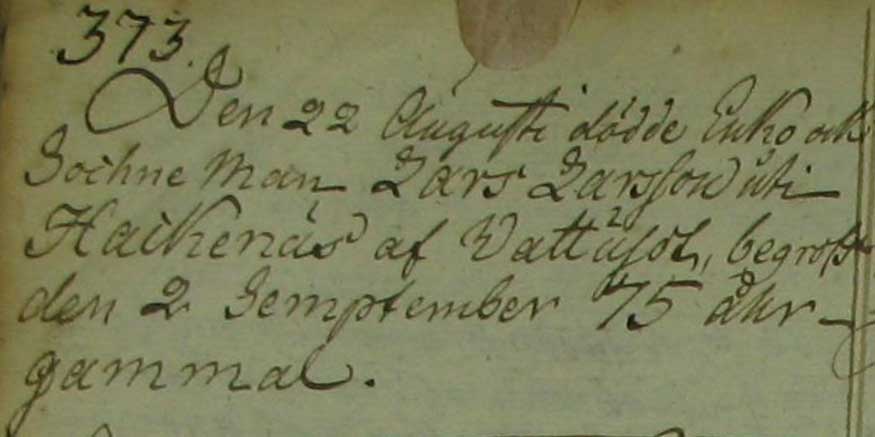 373.
Den 22 Augusti dödde Enko ock
Sochne Man Lars Larsson uti
Haikenäs af begrofs
den 2 Semptember 75 åhr
gammal.